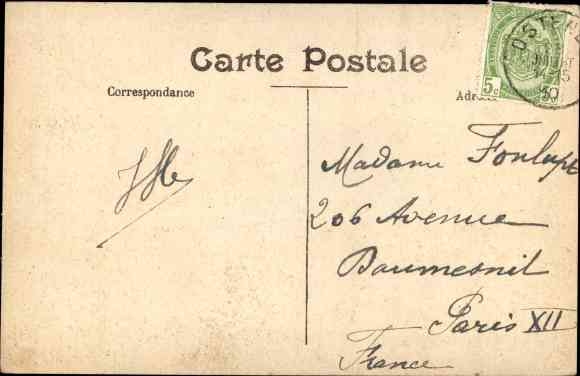 Carte Postale
Correspondance
5c
OSTEN
10
Madame Foulupt
206 Avenue
Daumesnil
Paris XII
France